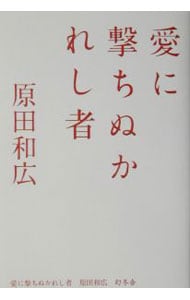 愛に
撃ちぬか
れし者
原田和広
愛に撃ちぬかれし者 原田和広 幻冬舎